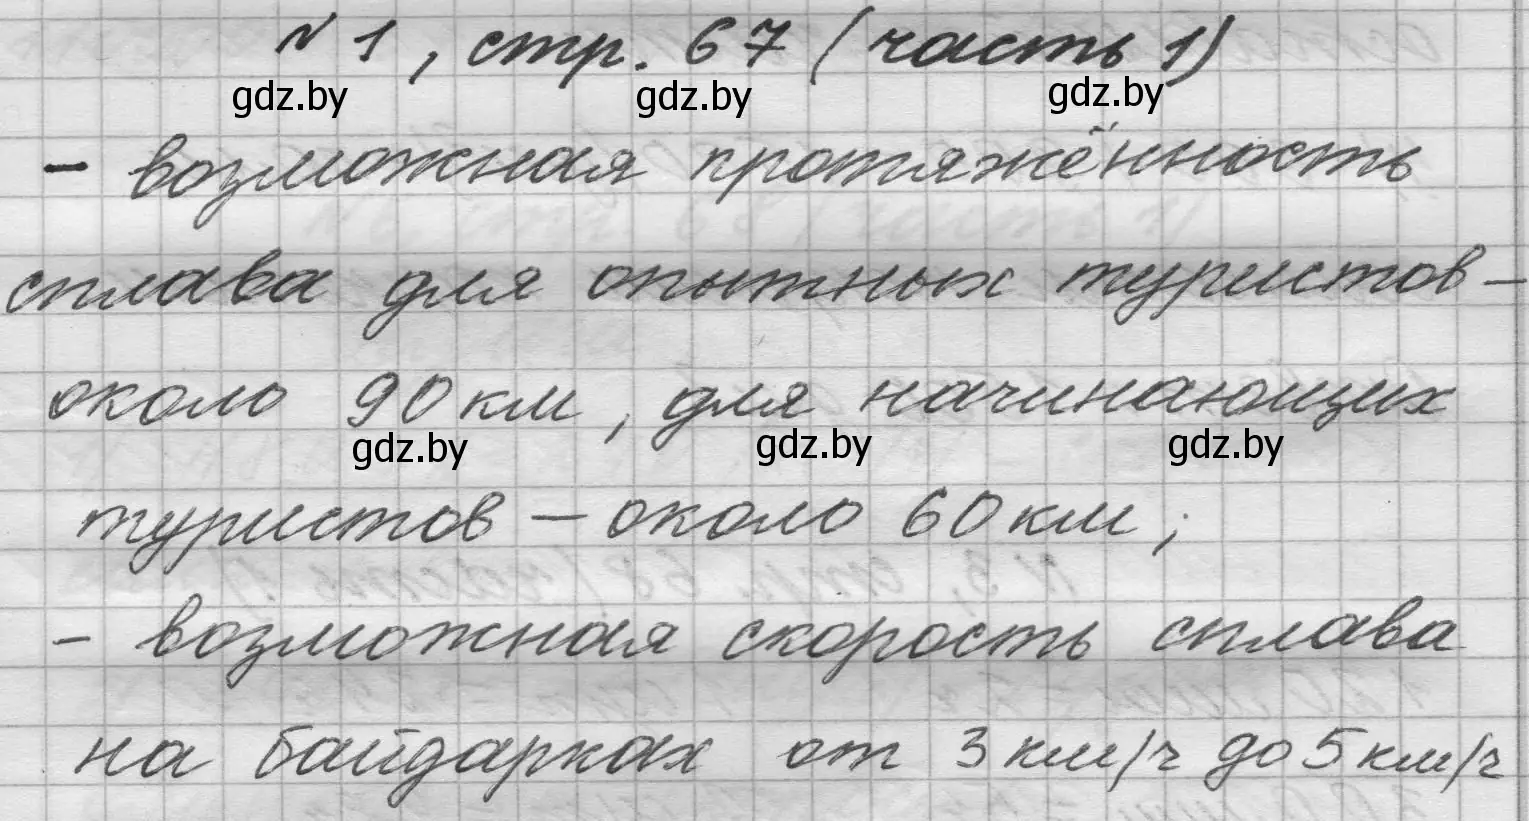 № 1, стр. 67 (часть 1)
gdz.by gdz.by gdz.by
- возможная протяжённость
сплава для опытных туристов -
около 90 км, для начинающих
gdz.by gdz.by gdz.by
туристов - около 60 км;
- возможная скорость сплава
на байдарках от 3 км/ч до 5 км/ч